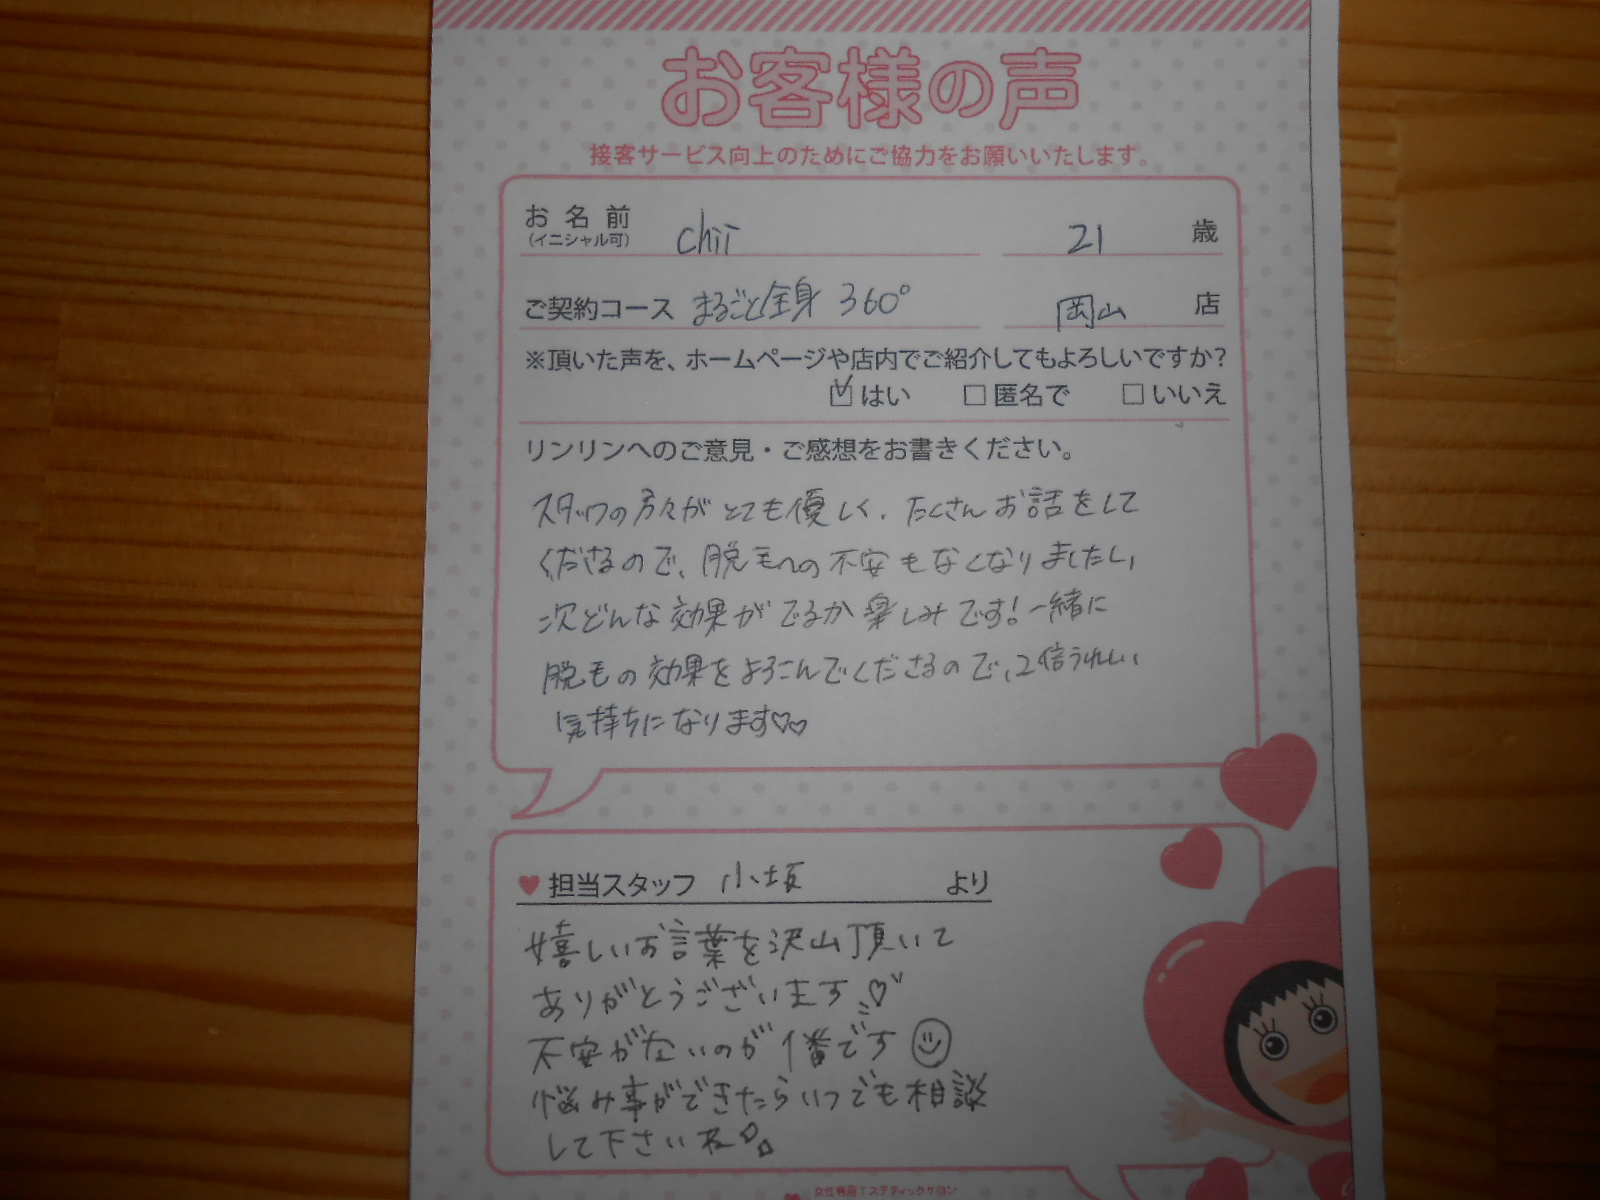 お客様の声
接客サービス向上のためにご協力をお願いいたします。
お名前 chii 21 歳
(イニシャル可)
ご契約コース まるごと全身 360° 岡山 店
※頂いた声を、ホームページや店内でご紹介してもよろしいですか?
☑はい □匿名で □いいえ
リンリンへのご意見・ご感想をお書きください。
スタッフの方々がとても優しく、たくさんお話をして
くださるので、脱毛への不安もなくなりましたし、
次どんな効果がでるか楽しみです!一緒に
脱毛の効果をよろこんでくださるので、2倍うれしい
気持ちになります♡♡
♥担当スタッフ 小坂 より
嬉しいお言葉を沢山頂いて
ありがとうございます♡
不安がないのが1番です☺
悩み事ができたらいつでも相談
して下さいね
女性専用エステティックサロン